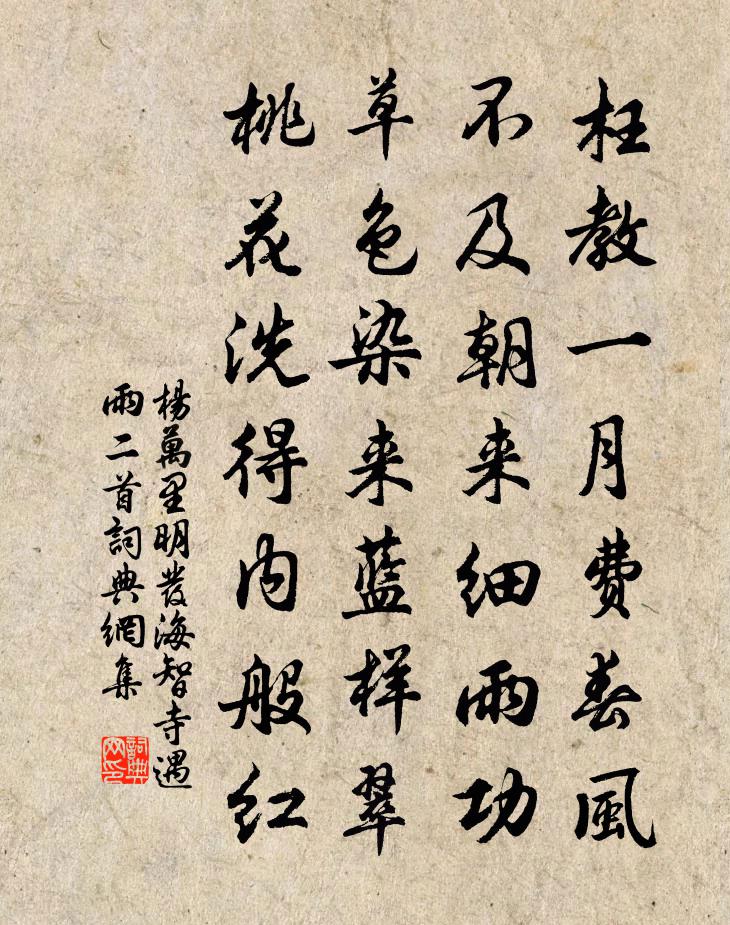 枉教一月費春風
不及朝来細雨功
草色染来藍样翠
桃花洗得肉般红
楊萬里明發海智寺遇
雨二首詞典網集
詞典
网印